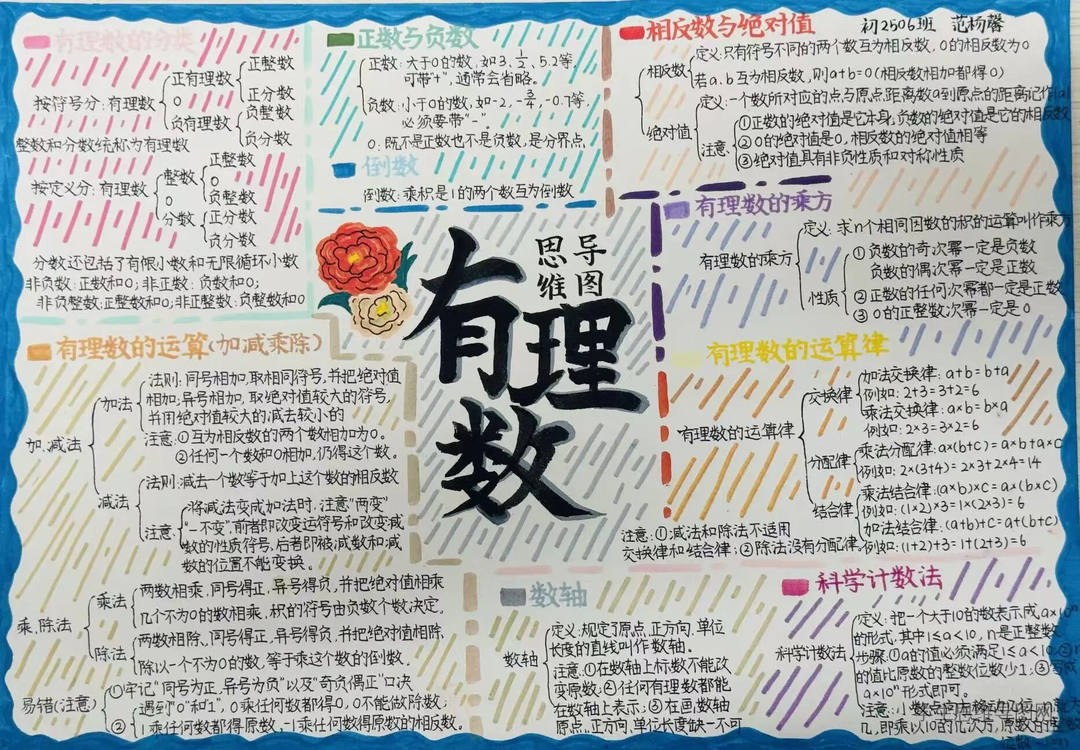 有理数的分类
按符号分:有理数
正有理数
正整数
正分数
0
负有理数
负整数
负分数
整数和分数统称为有理数
按定义分:有理数
整数
正整数
0
负整数
0
分数
正分数
负分数
分数还包括了有限小数和无限循环小数
非负数:正数和0;非正数:负数和0;
非负整数:正整数和0;非正整数:负整数和0
正数与负数
正数:大于0的数,如3,1/2,5.2等,
可带"+",通常会省略。
负数:小于0的数,如-2,-3/4,-0.7等,
必须要带"-"。
0:既不是正数也不是负数,是分界点
倒数
倒数:乘积是1的两个数互为倒数
相反数与绝对值
初2506班 范杨馨
相反数
定义:只有符号不同的两个数互为相反数,0的相反数为0
若a,b互为相反数,则a+b=0(相反数相加都得0)
绝对值
定义:一个数所对应的点与原点距离数a到原点的距离记作|a|
注意:
①正数的绝对值是它本身,负数的绝对值是它的相反数
②0的绝对值是0,相反数的绝对值相等
③绝对值具有非负性质和对称性质
有理数的乘方
有理数的乘方
定义:求n个相同因数的积的运算叫作乘方
性质
①负数的奇次幂一定是负数
负数的偶次幂一定是正数
②正数的任何次幂都一定是正数
③0的正整数次幂一定是0
思维导图
有理数
有理数的运算(加减乘除)
加、减法
加法
法则:同号相加,取相同符号,并把绝对值
相加;异号相加,取绝对值较大的符号,
并用绝对值较大的减去较小的
注意:①互为相反数的两个数相加为0。
②任何一个数和0相加,仍得这个数。
减法
法则:减去一个数等于加上这个数的相反数
注意:
将减法变成加法时,注意"两变"
"一不变",前者即改变运符号和改变减
数的性质符号,后者即被减数和减
数的位置不能变换。
乘、除法
乘法
两数相乘,同号得正,异号得负,并把绝对值相乘
几个不为0的数相乘,积的符号由负数个数决定,
除法
两数相除,同号得正,异号得负,并把绝对值相除,
除以一个不为0的数,等于乘这个数的倒数。
易错(注意)
①牢记"同号为正,异号为负"以及"奇负偶正"口决
遇到"0"和"1",0乘任何数都得0,0不能做除数;
②1乘任何数都得原数,-1乘任何数得原数的相反数。
有理数的运算律
有理数的运算律
交换律
加法交换律:a+b=b+a
例如:2+3=3+2=6
乘法交换律:a×b=b×a
例如:2×3=3×2=6
分配律
乘法分配律:a×(b+c)=a×b+a×c
例如:2×(3+4)=2×3+2×4=14
结合律
乘法结合律:(a×b)×c=a×(b×c)
例如:(1×2)×3=1×(2×3)=6
加法结合律:(a+b)+c=a+(b+c)
例如:(1+2)+3=1+(2+3)=6
注意:①减法和除法不适用
交换律和结合律;②除法没有分配律
数轴
数轴
定义:规定了原点,正方向,单位
长度的直线叫作数轴。
注意:①在数轴上标数不能改
变原数;②任何有理数都能
在数轴上表示;③在画数轴
原点,正方向,单位长度缺一不可
科学计数法
科学计数法
定义:把一个大于10的数表示成a×10ⁿ
的形式,其中1≤a<10,n是正整数
步骤:①a的值必须满足1≤a<10,②n
的值比原数的整数位数少1;③写成
a×10ⁿ形式即可。
注意:小数点向右移动几位
几,即乘以10的几次方,原数的整数